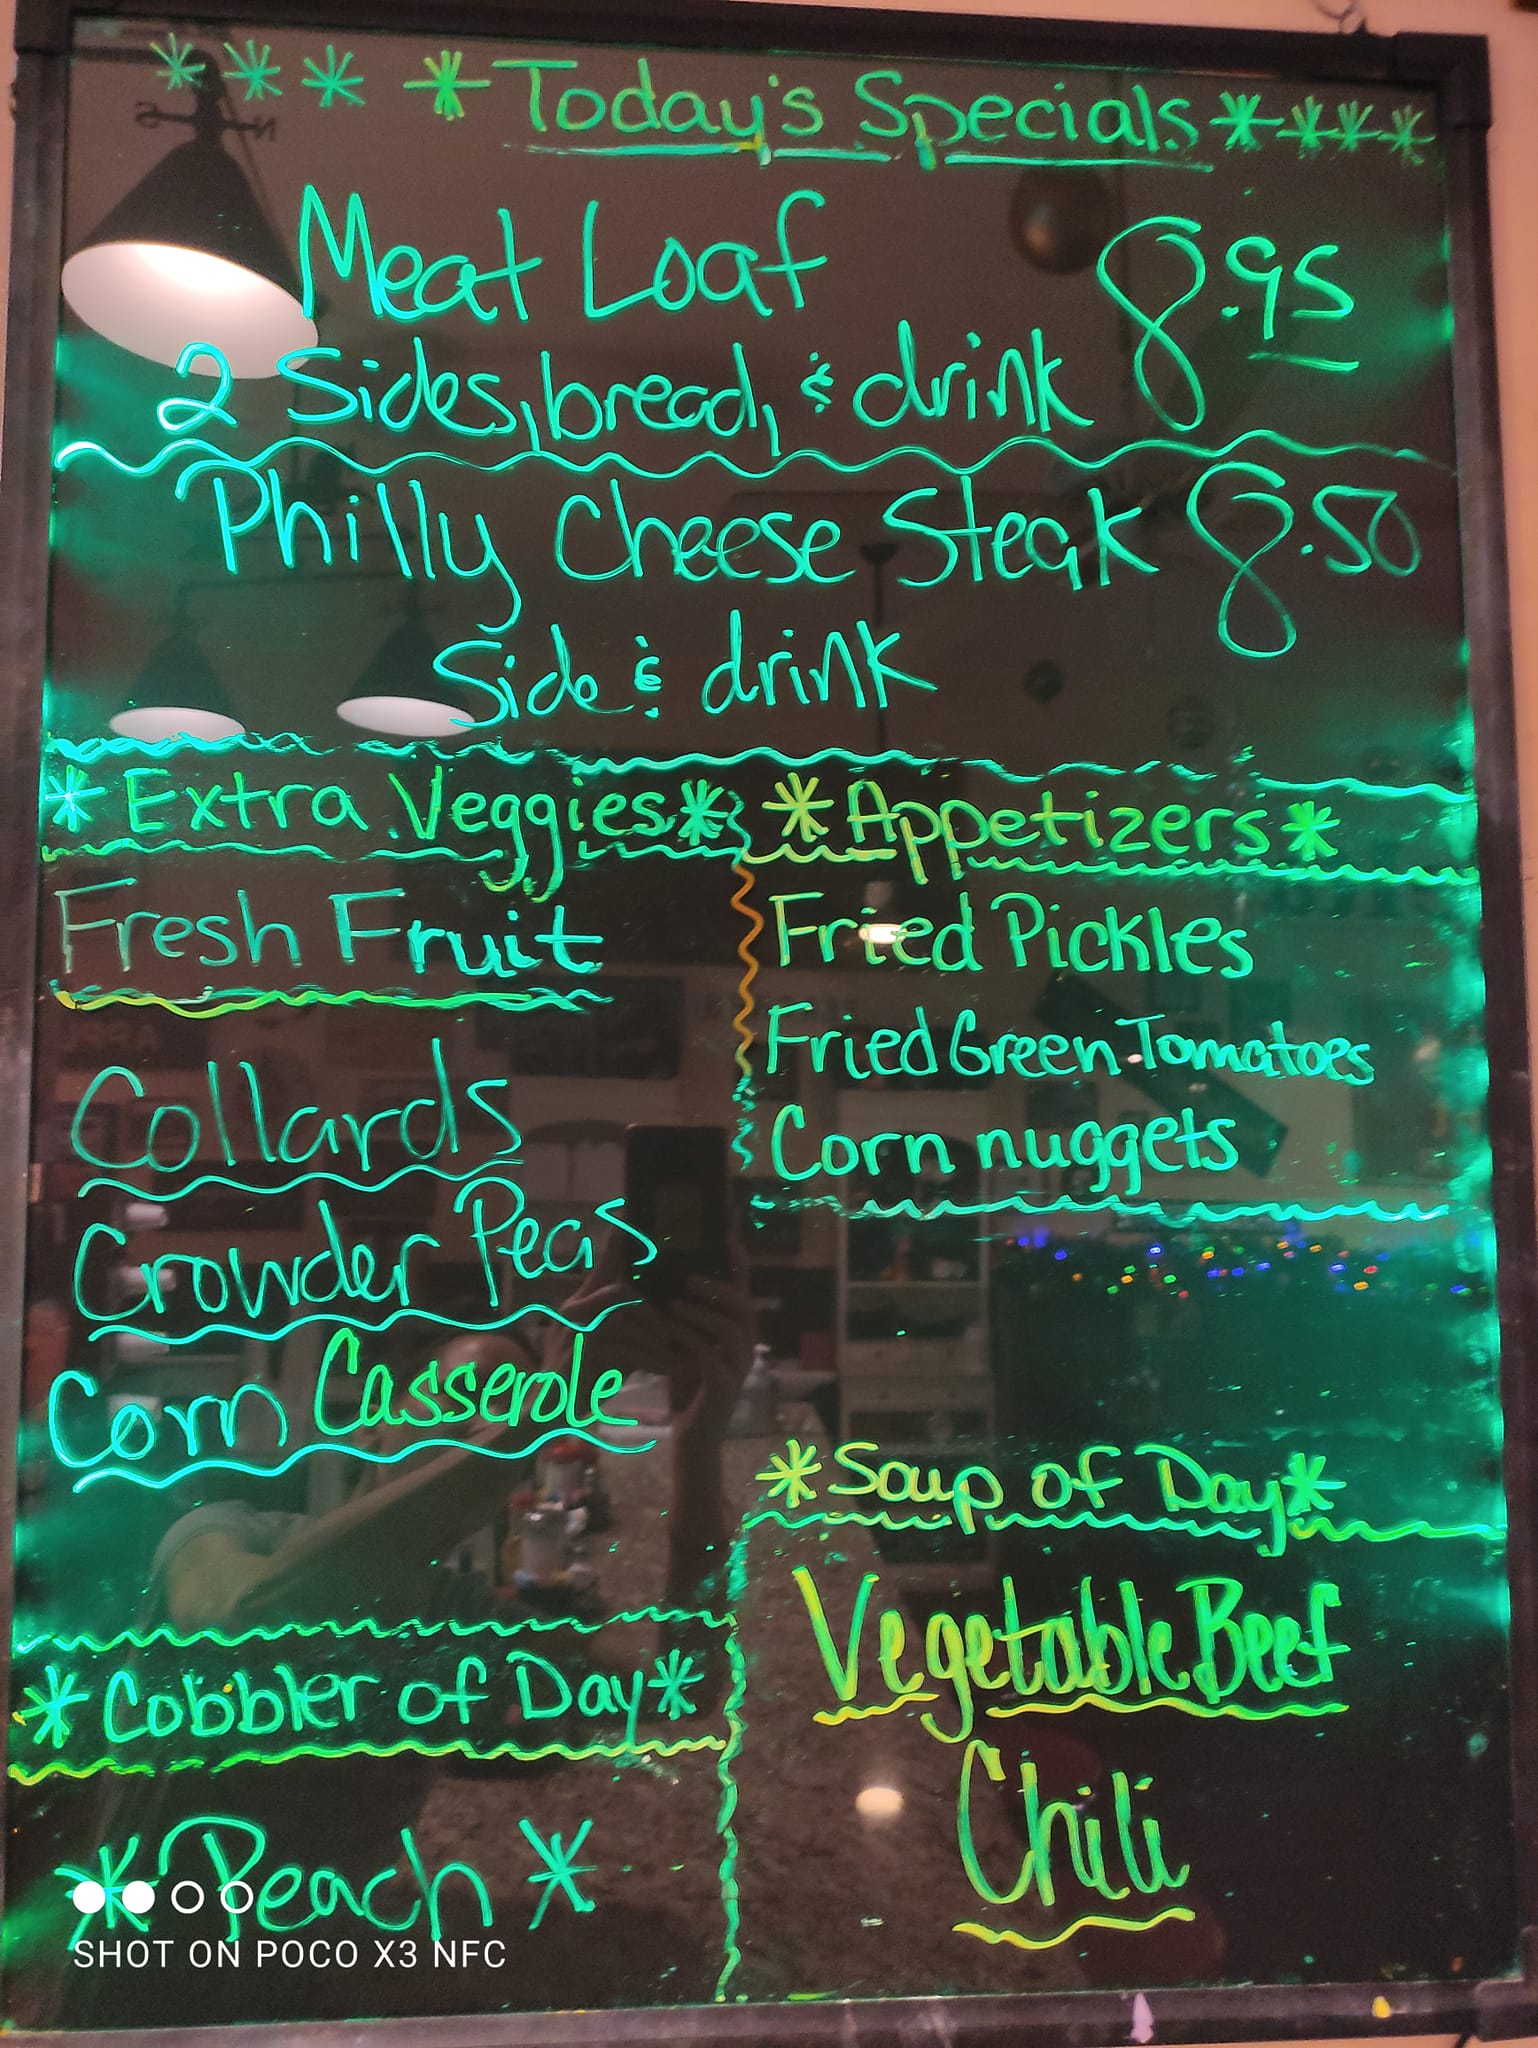 *** *Today's Specials****
Meat Loaf 8.95
2 Sides, bread, & drink
Philly Cheese Steak 8.50
Side & drink
*Extra Veggies*
Fresh Fruit
Collards
Crowder Peas
Corn Casserole
*Appetizers*
Fried Pickles
Fried Green Tomatoes
Corn nuggets
*Soup of Day*
Vegetable Beef
Chili
*Cobbler of Day*
*Peach*
SHOT ON POCO X3 NFC